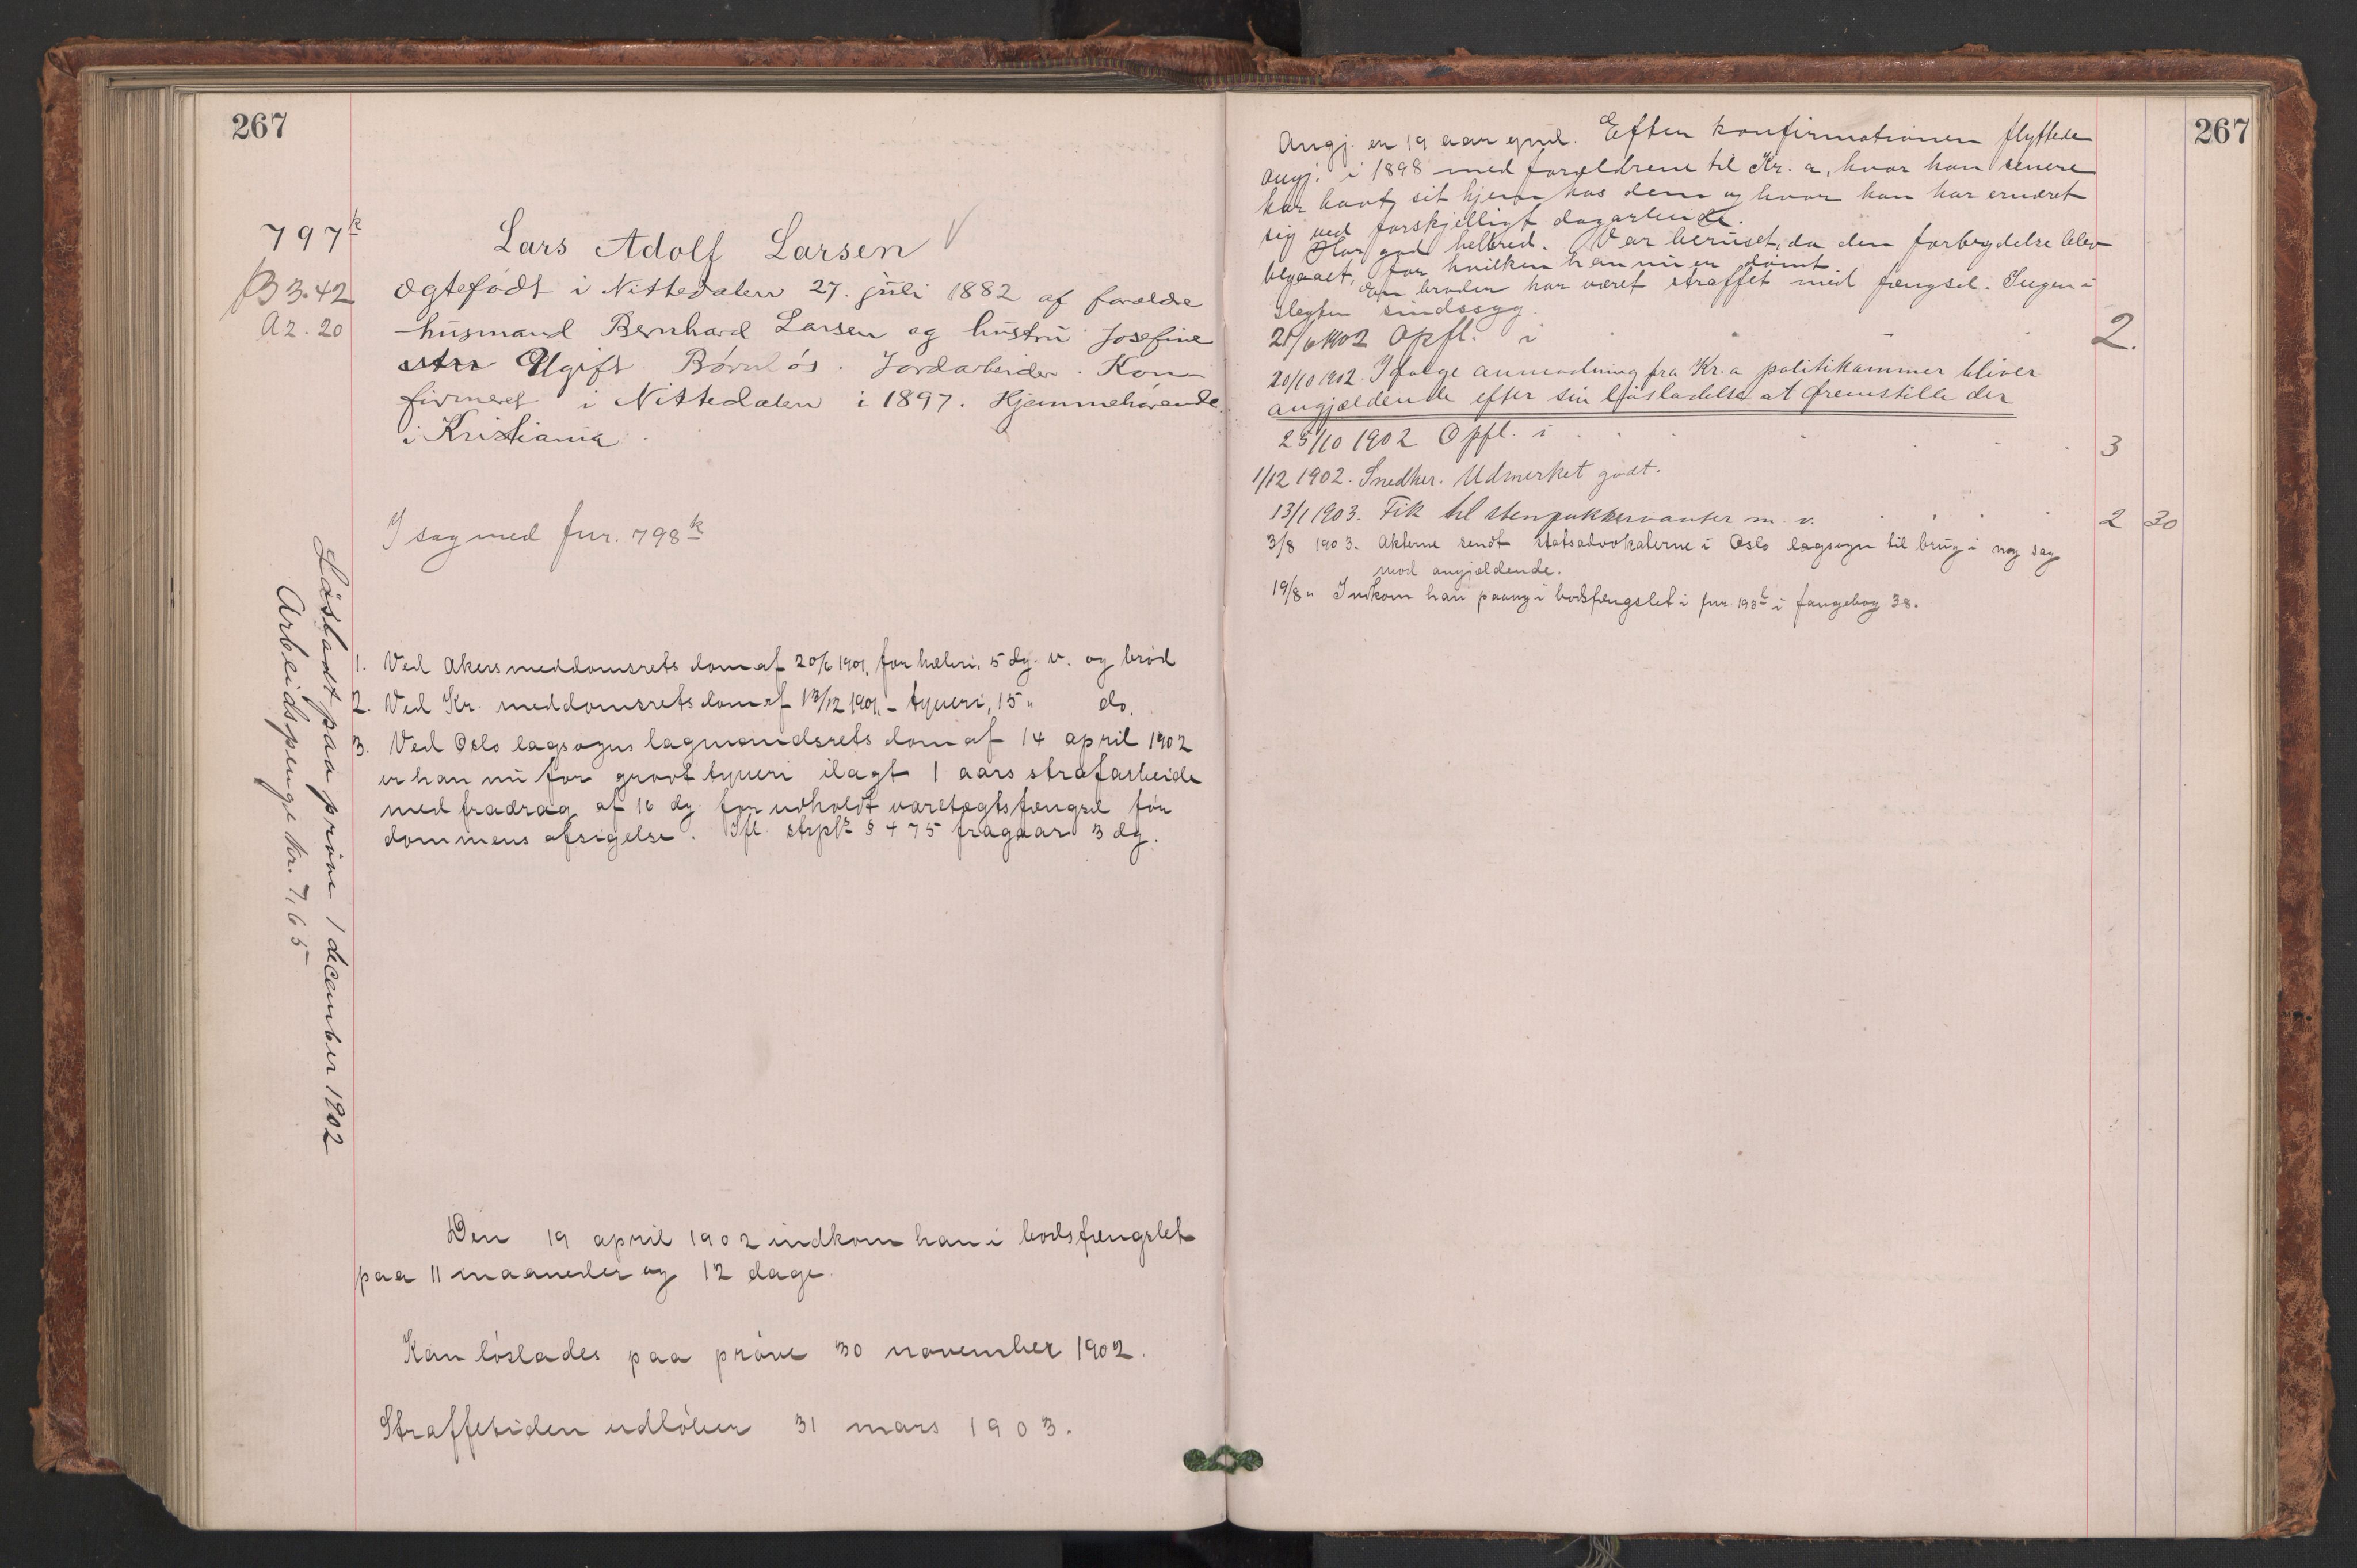 267
797k
B 3.42
A 2.20
Lars Adolf Larsen
Ægtefødt i Nittedalen 27. juli 1882 af forældre
husmand Bernhard Larsen og hustru Josefine
Ugift Børnløs. Jordarbeider. Kon-
firmeret i Nittedalen i 1897. Hjemmehørende
i Kristiania.
I sag med fnr. 798k
Løsladt paa prøve 1 december 1902
Arbeidspenge kr. 7,65
1. Ved Akers meddomsrets dom af 20/6 1901, for hæleri, 5 dg. v. og brød
2. Ved Kr. meddomsrets dom af 13/12 1901, - tyveri, 15 " do.
3. Ved Oslo lagsogns lagmandsrets dom af 14 april 1902
er han nu for grovt tyveri ilagt 1 aars strafarbeide
med fradrag af 16 dg. for udholdt varetægtsfængsel før
dommens afsigelse. Ifl. strpl. § 475 fragaar 3 dg.
Den 19 april 1902 indkom han i bodsfængslet
paa 11 maaneder og 12 dage.
Kan løslades paa prøve 30 november 1902.
Straffetiden udløber 31 mars 1903.
267
Angj. er 19 aar gml. Efter konfirmationen flyttede
angj. i 1898 med forældrene til Kr.a, hvor han senere
har havt sit hjem hos dem og hvor han har ernæret
sig ved forskjelligt dagarbeide.
Har god helbred. Var beruset, da den forbrydelse blev
begaaet, for hvilken han nu er dømt.
En broder har været straffet med fængsel. Ingen i
slegten sindssyg.
21/6 1902 Opfl. i 2.
20/10 1902. Ifølge anmodning fra Kr.a politikammer bliver
angjældende efter sin løsladelse at fremstille der
25/10 1902 Opfl. i 3
1/12 1902. Snedker. Udmerket godt.
13/1 1903. Fik til stenpukkervanter m. v. 2 30
3/8 1903. Akterne sendt statsadvokaterne i Oslo lagsogn til brug i ny sag
mod angjældende.
19/8 " Indkom han paany i bodsfængslet i fnr. 193k i fangebog 38.